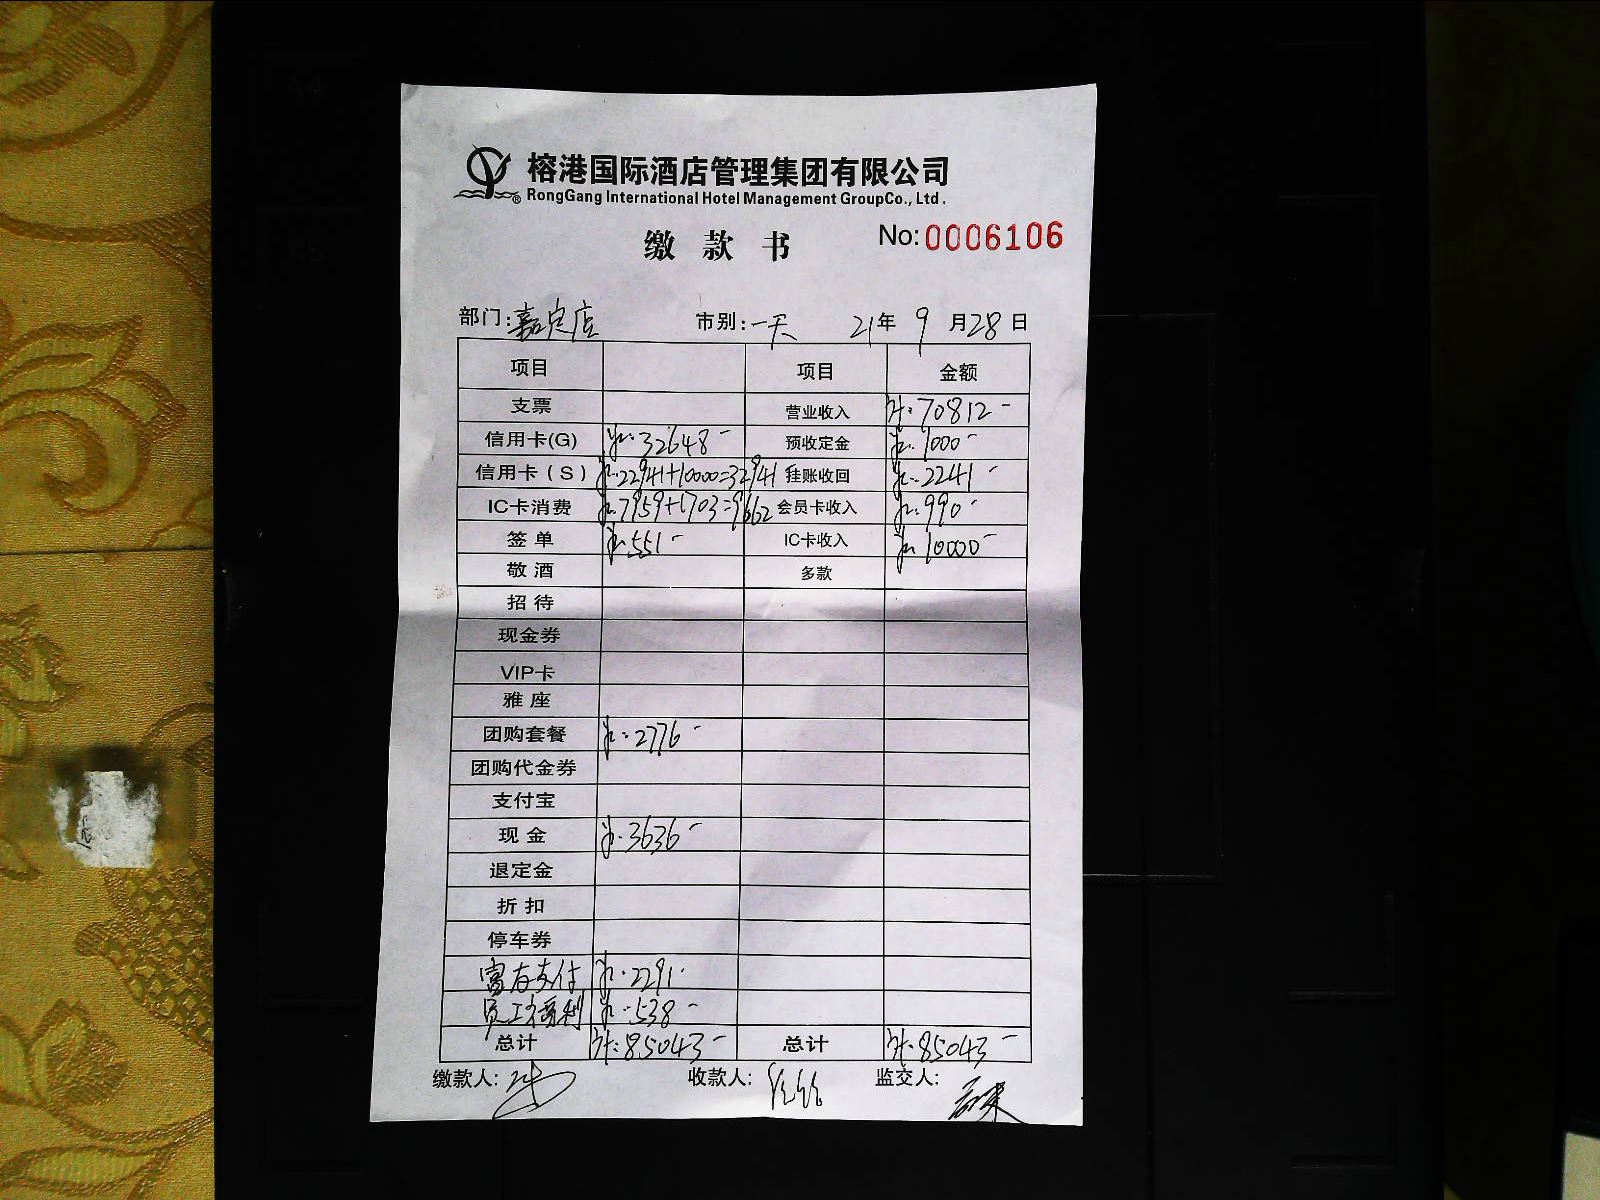 榕港国际酒店管理集团有限公司
® RongGang International Hotel Management GroupCo., Ltd.
缴款书 No:0006106
部门:嘉定店 市别:一天 21年9月28日
项目 项目 金额
支票 营业收入 计:70812-
信用卡(G) 记:32648- 预收定金 记:1000-
信用卡(S) 记:22941+10000=32941 挂账收回 记:2241-
IC卡消费 记:7959+1703=9662 会员卡收入 记:990-
签单 记:551- IC卡收入 记:10000-
敬酒 多款
招待
现金券
VIP卡
雅座
团购套餐 记:2776-
团购代金券
支付宝
现金 记:3636-
退定金
折扣
停车券
富友支付 记:2291.
员工福利 记:538-
总计 计:85043- 总计 计:85043-
缴款人: 收款人: 监交人: